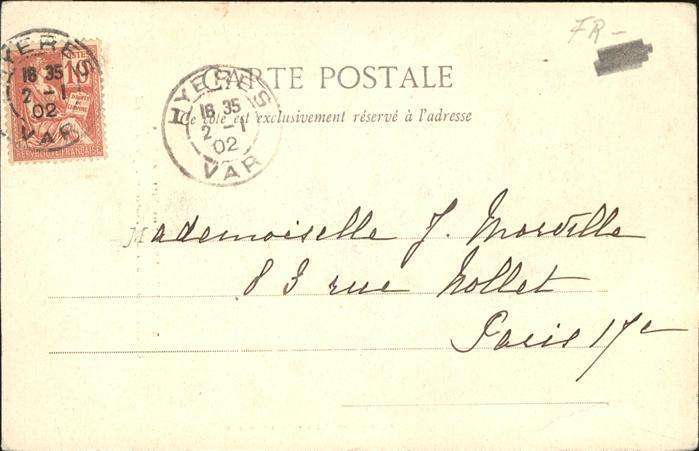 FR-
HYERES
18 35
2 - 1
02
VAR
POSTES
10
REPUBLIQUE FRANÇAISE
HYERES
18 35
2 - 1
02
VAR
CARTE POSTALE
Ce côté est exclusivement réservé à l'adresse
Mademoiselle J. Morville
83 rue Nollet
Paris 17e